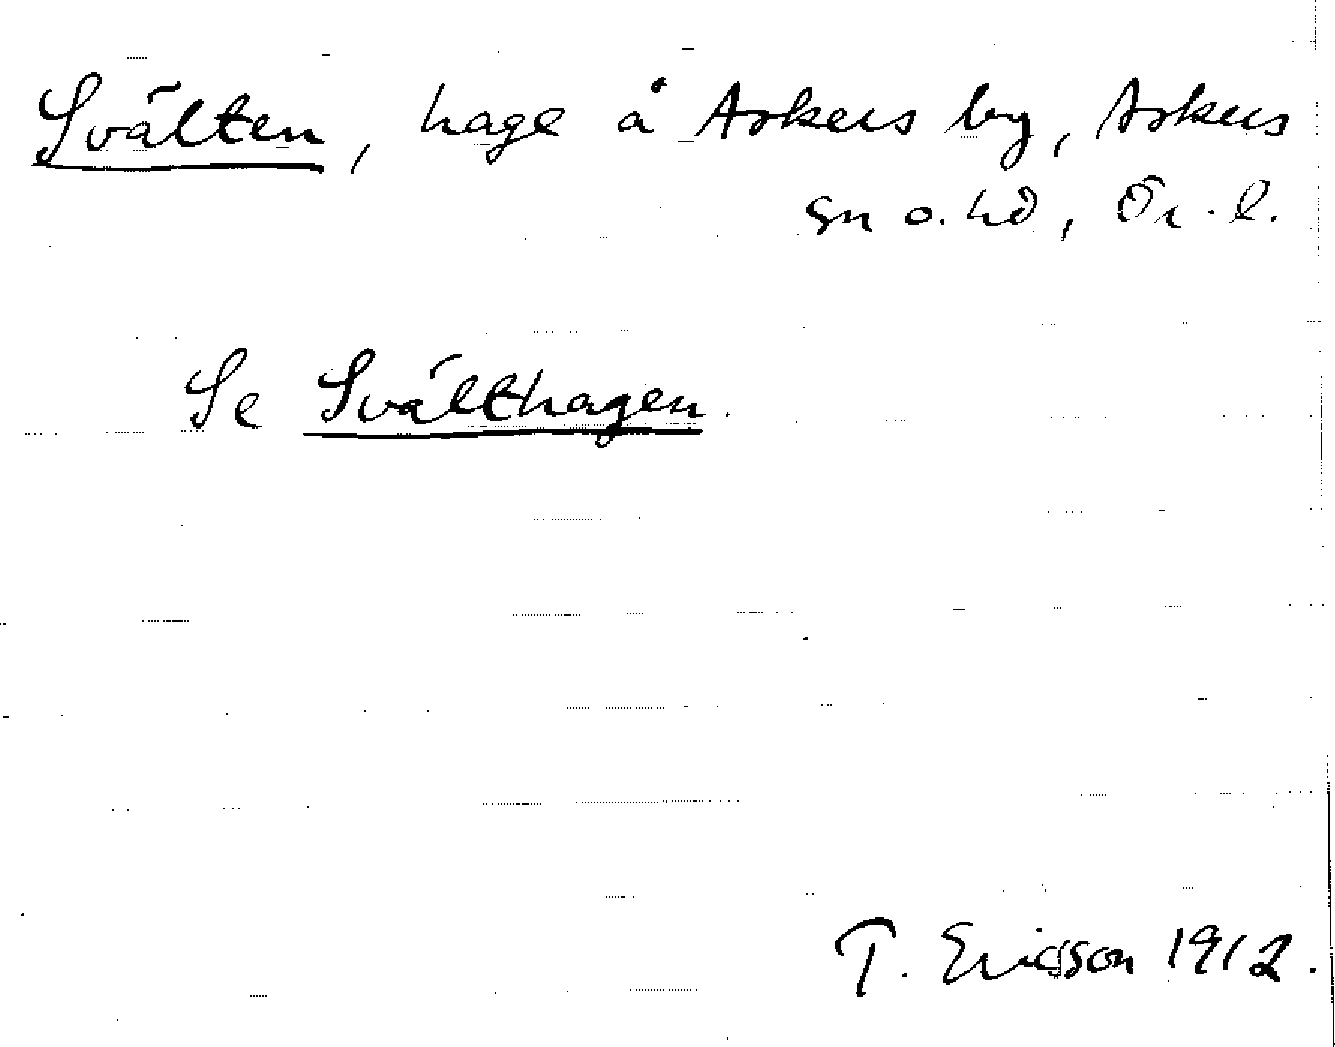 Svälten, hage å Askers by, Askers
sn o. hd, Ör. l.
Se Svälthagen.
T. Ericsson 1912.